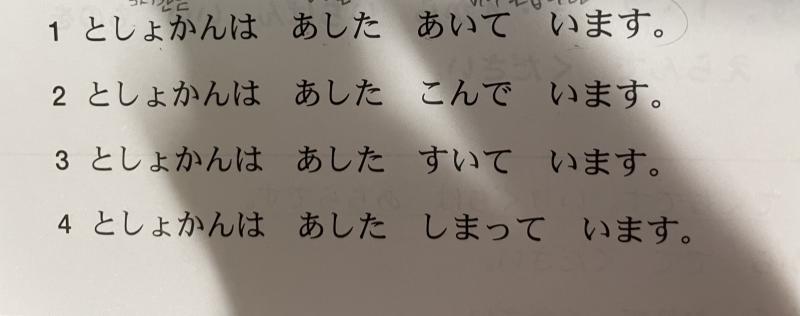 1 としょかんは あした あいて います。
2 としょかんは あした こんで います。
3 としょかんは あした すいて います。
4 としょかんは あした しまって います。